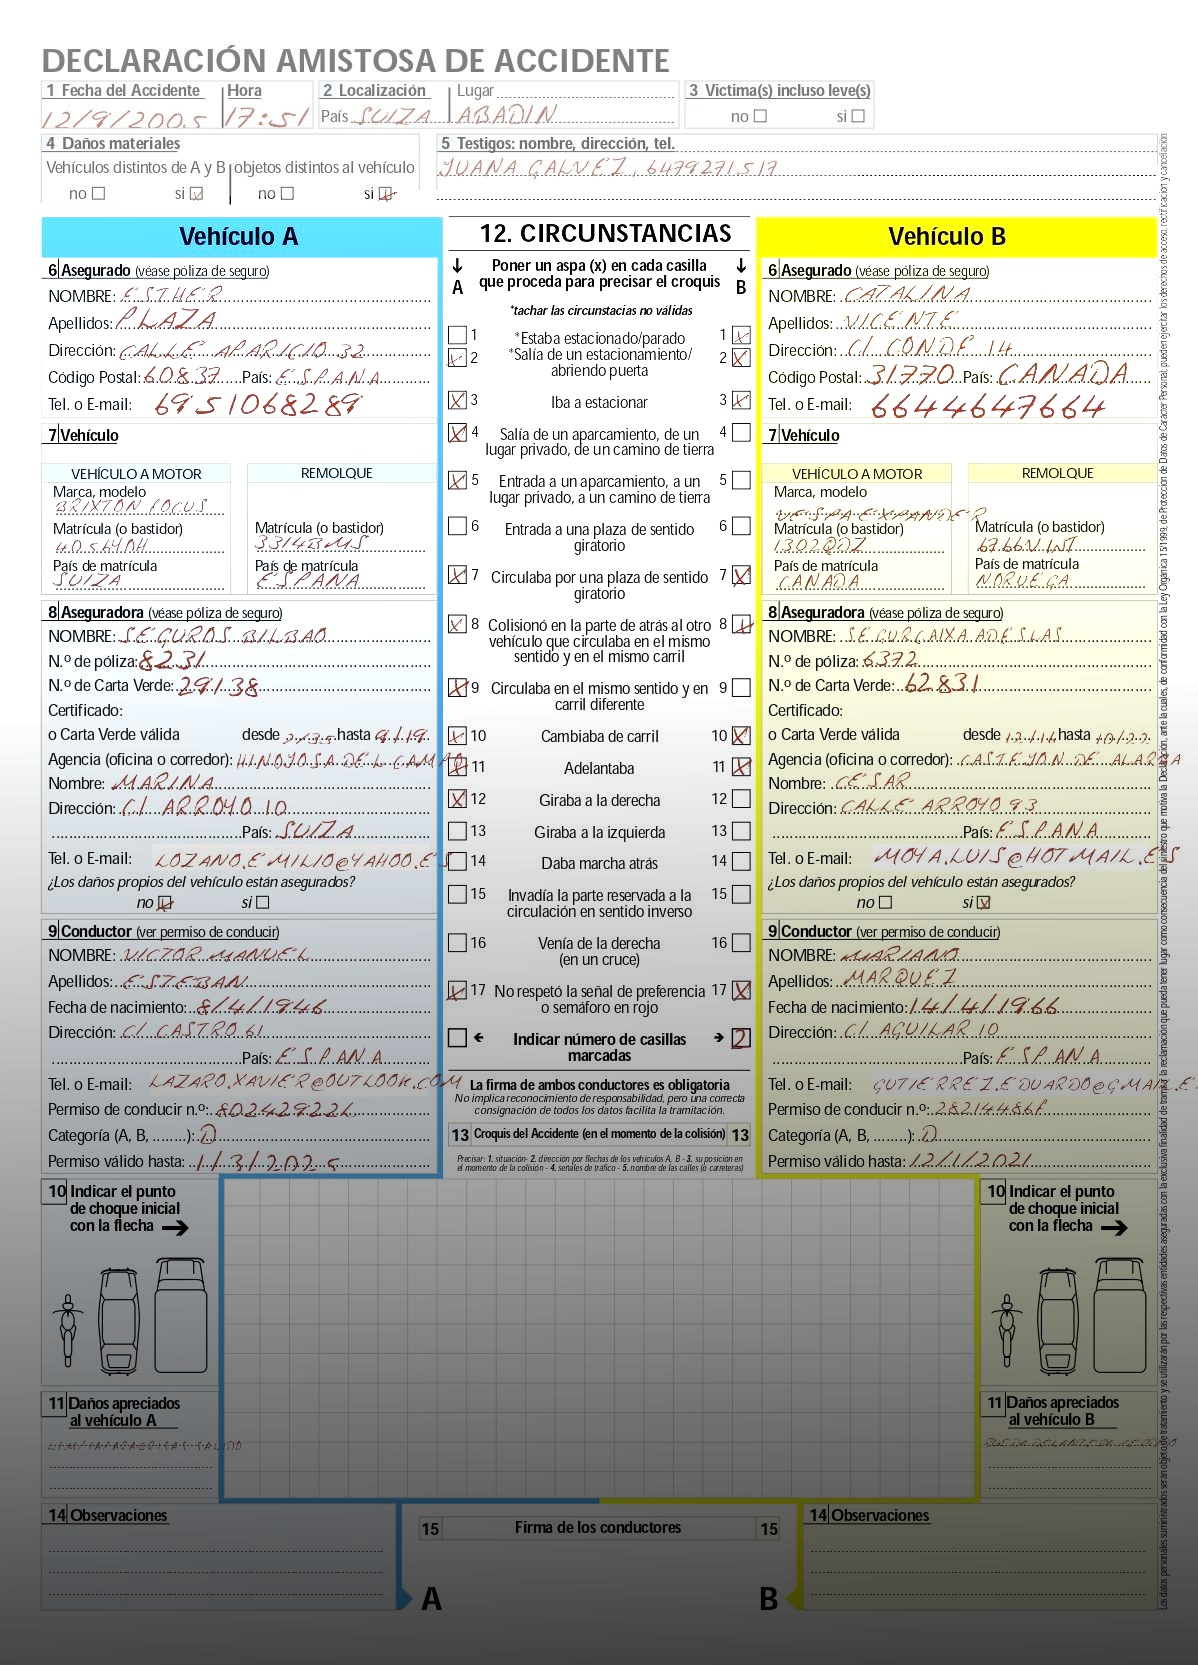 DECLARACIÓN AMISTOSA DE ACCIDENTE
1 Fecha del Accidente Hora 2 Localización Lugar 3 Victima(s) incluso leve(s)
12/9/2005 17:51 País SUIZA ABADIN no si
4 Daños materiales 5 Testigos: nombre, dirección, tel.
Vehículos distintos de A y B objetos distintos al vehículo JUANA GALVEZ, 6479271517
no si no si
Vehículo A
6 Asegurado (véase póliza de seguro)
NOMBRE: ESTHER
Apellidos: PLAZA
Dirección: CALLE APARICIO 32
Código Postal: 60837 País: ESPANA
Tel. o E-mail: 6951068289
7 Vehículo
VEHÍCULO A MOTOR REMOLQUE
Marca, modelo
BRIXTON FOCUS
Matrícula (o bastidor) Matrícula (o bastidor)
4056YDH 3314BMS
País de matrícula País de matrícula
SUIZA ESPANA
8 Aseguradora (véase póliza de seguro)
NOMBRE: SEGUROS BILBAO
N.º de póliza: 8231
N.º de Carta Verde: 29138
Certificado:
o Carta Verde válida desde hasta 9/19
Agencia (oficina o corredor): HINOJOSA DEL CAMPO
Nombre: MARINA
Dirección: C/ ARROYO 10
País: SUIZA
Tel. o E-mail: LOZANO.EMILIO@YAHOO.ES
¿Los daños propios del vehículo están asegurados?
no si
9 Conductor (ver permiso de conducir)
NOMBRE: VICTOR MANUEL
Apellidos: ESTEBAN
Fecha de nacimiento: 8/4/1946
Dirección: C/ CASTRO 61
País: ESPANA
Tel. o E-mail: LAZARO.XAVIER@OUTLOOK.COM
Permiso de conducir n.º: 80242922L
Categoría (A, B, ........): D
Permiso válido hasta: 1/3/2025
10 Indicar el punto
de choque inicial
con la flecha
11 Daños apreciados
al vehículo A
LIMPIAPARABRISAS CAIDO
14 Observaciones
12. CIRCUNSTANCIAS
A Poner un aspa (x) en cada casilla B
que proceda para precisar el croquis
*tachar las circunstacias no válidas
1 *Estaba estacionado/parado 1
2 *Salía de un estacionamiento/ 2
abriendo puerta
3 Iba a estacionar 3
4 Salía de un aparcamiento, de un 4
lugar privado, de un camino de tierra
5 Entrada a un aparcamiento, a un 5
lugar privado, a un camino de tierra
6 Entrada a una plaza de sentido 6
giratorio
7 Circulaba por una plaza de sentido 7
giratorio
8 Colisionó en la parte de atrás al otro 8
vehículo que circulaba en el mismo
sentido y en el mismo carril
9 Circulaba en el mismo sentido y en 9
carril diferente
10 Cambiaba de carril 10
11 Adelantaba 11
12 Giraba a la derecha 12
13 Giraba a la izquierda 13
14 Daba marcha atrás 14
15 Invadía la parte reservada a la 15
circulación en sentido inverso
16 Venía de la derecha 16
(en un cruce)
17 No respetó la señal de preferencia 17
o semáforo en rojo
Indicar número de casillas 2
marcadas
La firma de ambos conductores es obligatoria
No implica reconocimiento de responsabilidad, pero una correcta
consignación de todos los datos facilita la tramitación.
13 Croquis del Accidente (en el momento de la colisión) 13
Precisar: 1. situación- 2. dirección por flechas de los vehículos A, B - 3. su posición en
el momento de la colisión - 4. señales de tráfico - 5. nombre de las calles (o carreteras)
15 Firma de los conductores 15
A B
Vehículo B
6 Asegurado (véase póliza de seguro)
NOMBRE: CATALINA
Apellidos: VICENTE
Dirección: C/ CONDE 14
Código Postal: 31770 País: CANADA
Tel. o E-mail: 6644647664
7 Vehículo
VEHÍCULO A MOTOR REMOLQUE
Marca, modelo
VESPA EXPANDER
Matrícula (o bastidor) Matrícula (o bastidor)
1302QDZ 6766VWT
País de matrícula País de matrícula
CANADA NORUEGA
8 Aseguradora (véase póliza de seguro)
NOMBRE: SEGURCAIXA ADESLAS
N.º de póliza: 6372
N.º de Carta Verde: 62831
Certificado:
o Carta Verde válida desde 12/14 hasta 10/22
Agencia (oficina o corredor): CASTEJON DE ALARBA
Nombre: CESAR
Dirección: CALLE ARROYO 93
País: ESPANA
Tel. o E-mail: MOYA.LUIS@HOTMAIL.ES
¿Los daños propios del vehículo están asegurados?
no si
9 Conductor (ver permiso de conducir)
NOMBRE: MARIANO
Apellidos: MARQUEZ
Fecha de nacimiento: 14/4/1966
Dirección: C/ AGUILAR 10
País: ESPANA
Tel. o E-mail: GUTIERREZ.EDUARDO@GMAIL.ES
Permiso de conducir n.º: 28214486F
Categoría (A, B, ........): D
Permiso válido hasta: 12/1/2021
10 Indicar el punto
de choque inicial
con la flecha
11 Daños apreciados
al vehículo B
14 Observaciones